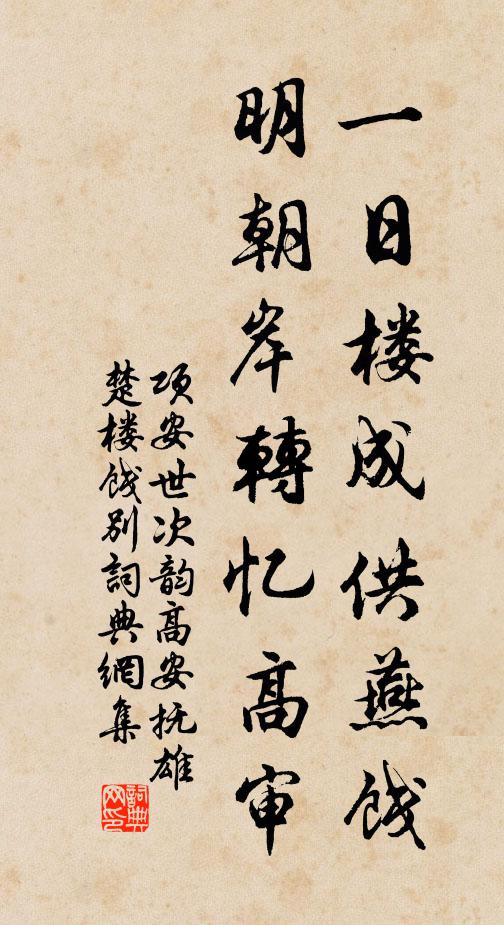 一日楼成供燕饯
明朝岸轉忆高审
项安世次韵高安抚雄
楚楼饯别詞典網集
詞典
网印